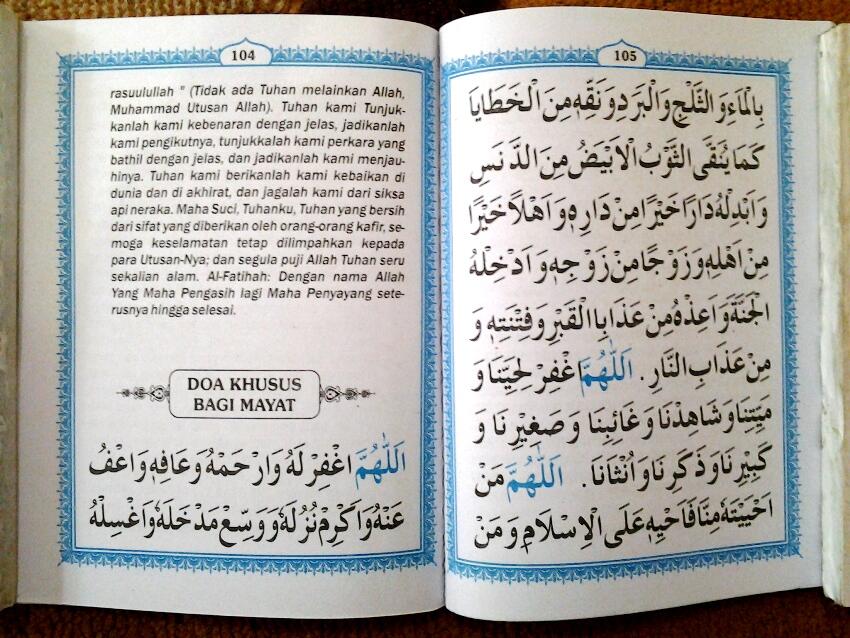 104
rasuulullah " (Tidak ada Tuhan melainkan Allah,
Muhammad Utusan Allah). Tuhan kami Tunjuk-
kanlah kami kebenaran dengan jelas, jadikanlah
kami pengikutnya, tunjukkalah kami perkara yang
bathil dengan jelas, dan jadikanlah kami menjau-
hinya. Tuhan kami berikanlah kami kebaikan di
dunia dan di akhirat, dan jagalah kami dari siksa
api neraka. Maha Suci, Tuhanku, Tuhan yang bersih
dari sifat yang diberikan oleh orang-orang kafir, se-
moga keselamatan tetap dilimpahkan kepada
para Utusan-Nya; dan segula puji Allah Tuhan seru
sekalian alam. Al-Fatihah: Dengan nama Allah
Yang Maha Pengasih lagi Maha Penyayang sete-
rusnya hingga selesai.
DOA KHUSUS
BAGI MAYAT
اَللّٰهُمَّ اغْفِرْ لَهُ وَارْحَمْهُ وَعَافِهِ وَاعْفُ
عَنْهُ وَاَكْرِمْ نُزُلَهُ وَوَسِّعْ مَدْخَلَهُ وَاغْسِلْهُ
105
بِالْمَاءِ وَالثَّلْجِ وَالْبَرَدِ وَنَقِّهِ مِنَ الْخَطَايَا
كَمَا يُنَقَّى الثَّوْبُ الْاَبْيَضُ مِنَ الدَّنَسِ
وَاَبْدِلْهُ دَارًا خَيْرًا مِنْ دَارِهِ وَاَهْلًا خَيْرًا
مِنْ اَهْلِهِ وَزَوْجًا مِنْ زَوْجِهِ وَاَدْخِلْهُ
الْجَنَّةَ وَاَعِذْهُ مِنْ عَذَابِ الْقَبْرِ وَفِتْنَتِهِ وَ
مِنْ عَذَابِ النَّارِ . اَللّٰهُمَّ غْفِرْ لِحَيِّنَا وَ
مَيِّتِنَا وَشَاهِدْنَا وَغَائِبِنَا وَصَغِيْرِنَا وَ
كَبِيْرِنَا وَذَكَرِنَا وَاُنْثَانَا . اَللّٰهُمَّ مَنْ
اَحْيَيْتَهُ مِنَّا فَاَحْيِهِ عَلَى الْاِسْلَامِ وَمَنْ